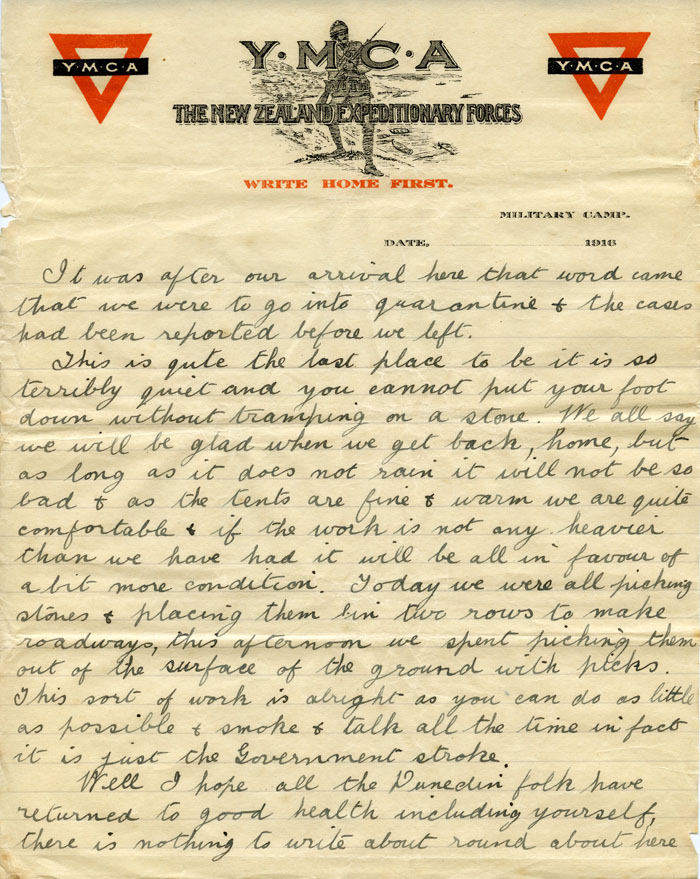 Y·M·C·A
Y·M·C·A
Y·M·C·A
THE NEW ZEALAND EXPEDITIONARY FORCES
WRITE HOME FIRST.
MILITARY CAMP.
DATE, 1916
It was after our arrival here that word came
that we were to go into quarantine & the cases
had been reported before we left.
This is qute the last place to be it is so
terribly quiet and you cannot put your foot
down without tramping on a stone. We all say
we will be glad when we get back, home, but
as long as it does not rain it will not be so
bad & as the tents are fine & warm we are quite
comfortable & if the work is not any heavier
than we have had it will be all in favour of
a bit more condition. Today we were all picking
stones & placing them in two rows to make
roadways, this afternoon we spent picking them
out of the surface of the ground with picks.
This sort of work is alright as you can do as little
as possible & smoke & talk all the time in fact
it is just the Government stroke.
Well I hope all the Dunedin folk have
returned to good health including yourself,
there is nothing to write about round about here